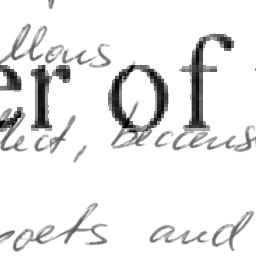 llous
er of
llect, because
poets and